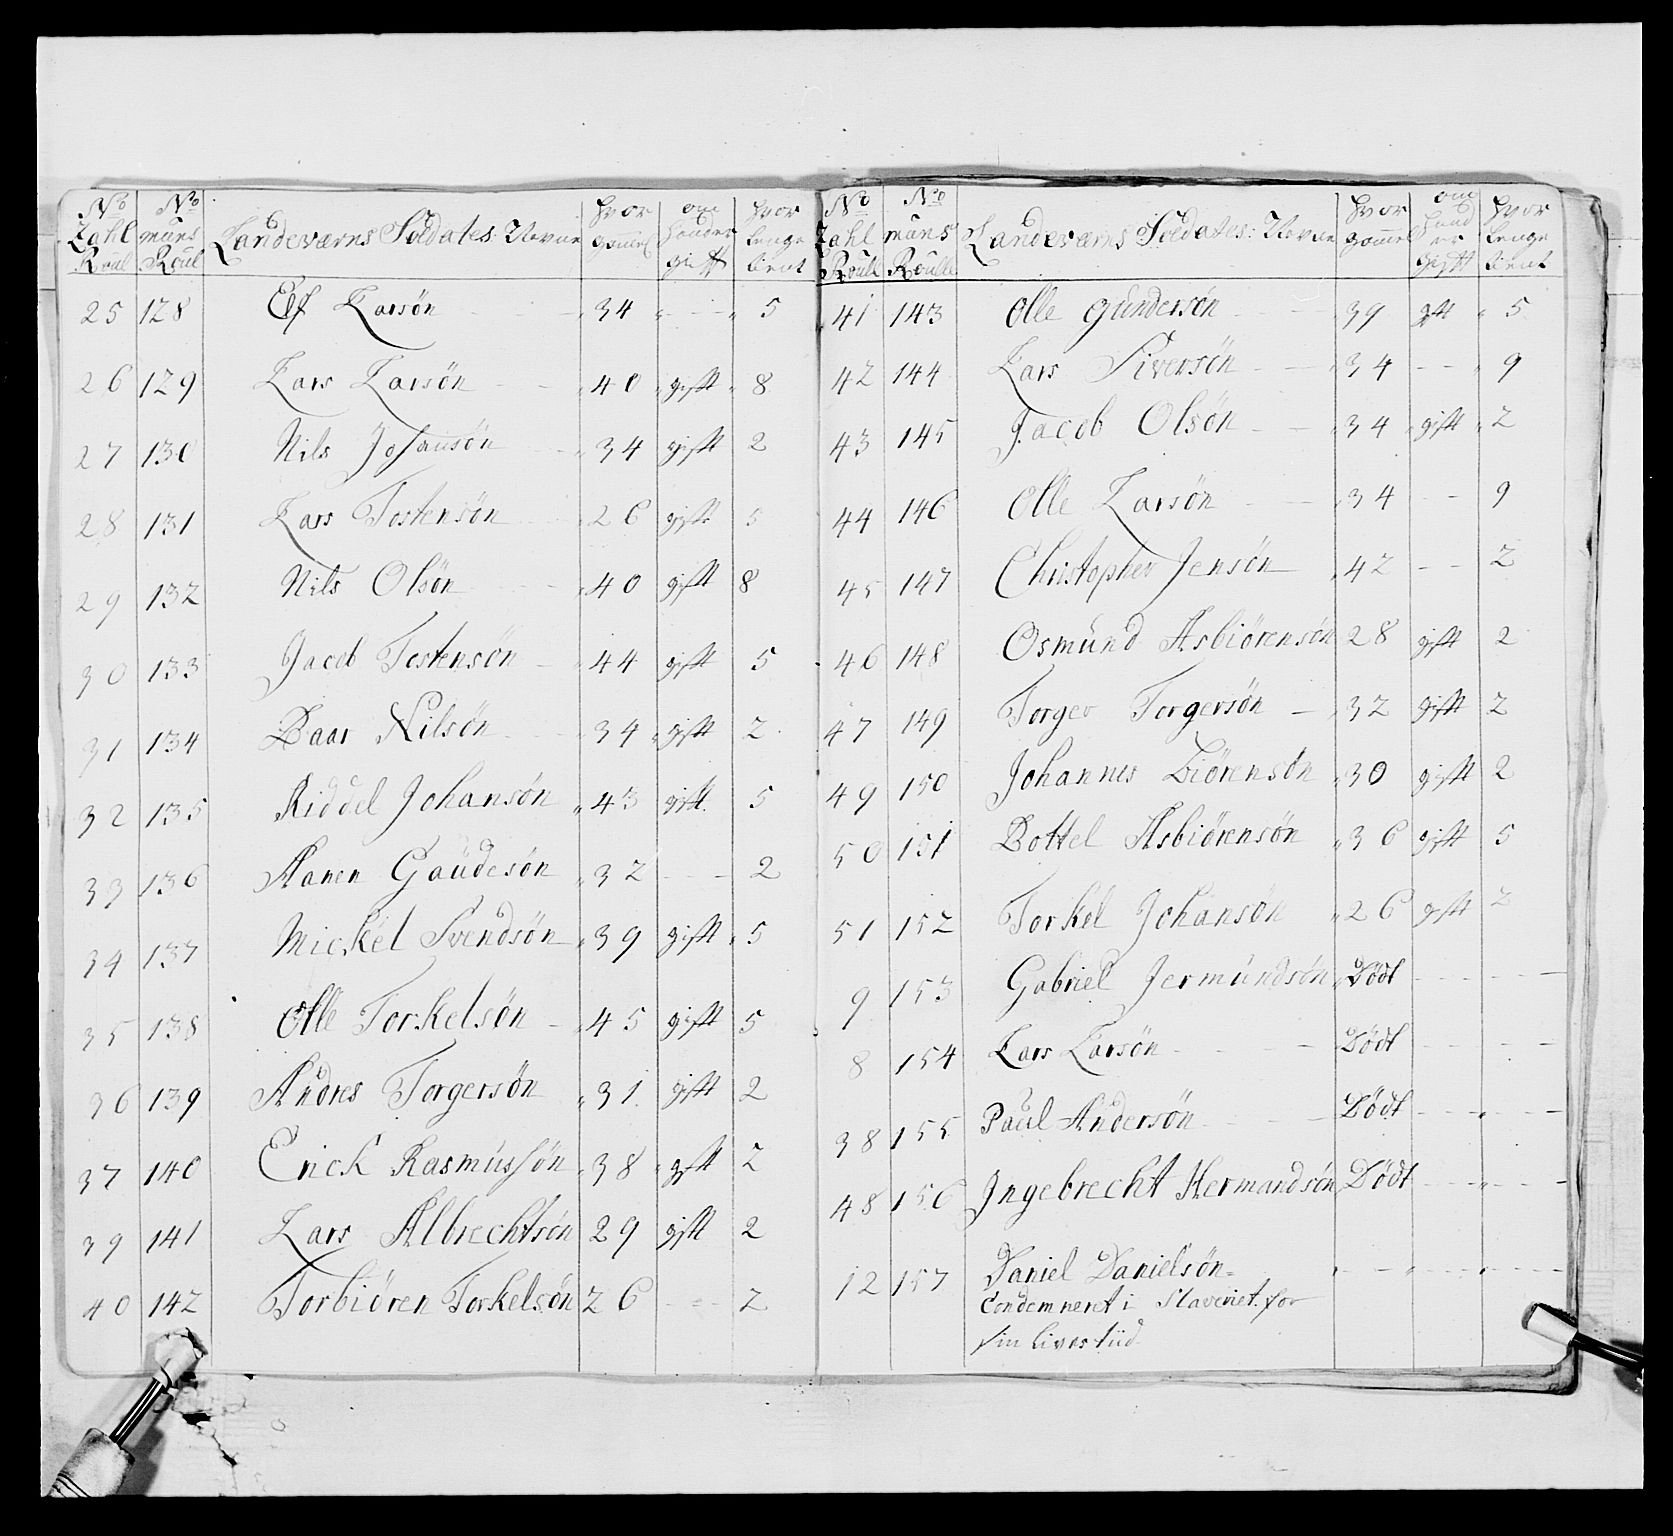 No Zahl Roul | No müns Roul | Landeværns Soldates: Nevne | hvor gammel | om hander gift | hvor lenge tient
25 128 Elf Larsøn 34 - - - 5
26 129 Lars Larsøn 40 gift 8
27 130 Nils Johansøn 34 gift 2
28 131 Lars Tostensøn 26 gift 5
29 132 Nils Olsøn 40 gift 8
30 133 Jacob Tostensøn 44 gift 5
31 134 Baar Nilsøn 34 gift 2
32 135 Riddel Johansøn 43 gift 5
33 136 Aanen Gaüdesøn 32 - - - 2
34 137 Mickel Svendsøn 39 gift 5
35 138 Olle Torkelsøn 45 gift 5
36 139 Andres Torgersøn 31 gift 2
37 140 Erick Rasmussøn 38 gift 2
39 141 Lars Albrechtsøn 29 gift 2
40 142 Torbiören Torkelsøn 26 - - - 2
No Zahl Roull | No müns Roulle | Landeværns Soldates: Nevne | hvor gammel | om hand er gift | hvor lenge tient
41 143 Olle Gundersøn 39 gift 5
42 144 Lars Siversøn 34 - - 9
43 145 Jacob Olsøn 34 gift 2
44 146 Olle Larsøn 34 - - 9
45 147 Christopher Jensøn 42 - - 2
46 148 Osmünd Asbiörensøn 28 gift 2
47 149 Torger Torgersøn 32 gift 2
49 150 Johannes Biörensøn 30 gift 2
50 151 Bottel Asbiörensøn 36 gift 5
51 152 Torkel Johansøn 26 gift 2
9 153 Gabriel Jermündsøn Dödt - - -
8 154 Lars Larsøn Dödt - - -
38 155 Paül Andersøn Dödt - - -
48 156 Ingebrecht Hermandsøn Dödt - - -
12 157 Daniel Danielsøn=
Condemneret i Slaveriet for
sin livestiid